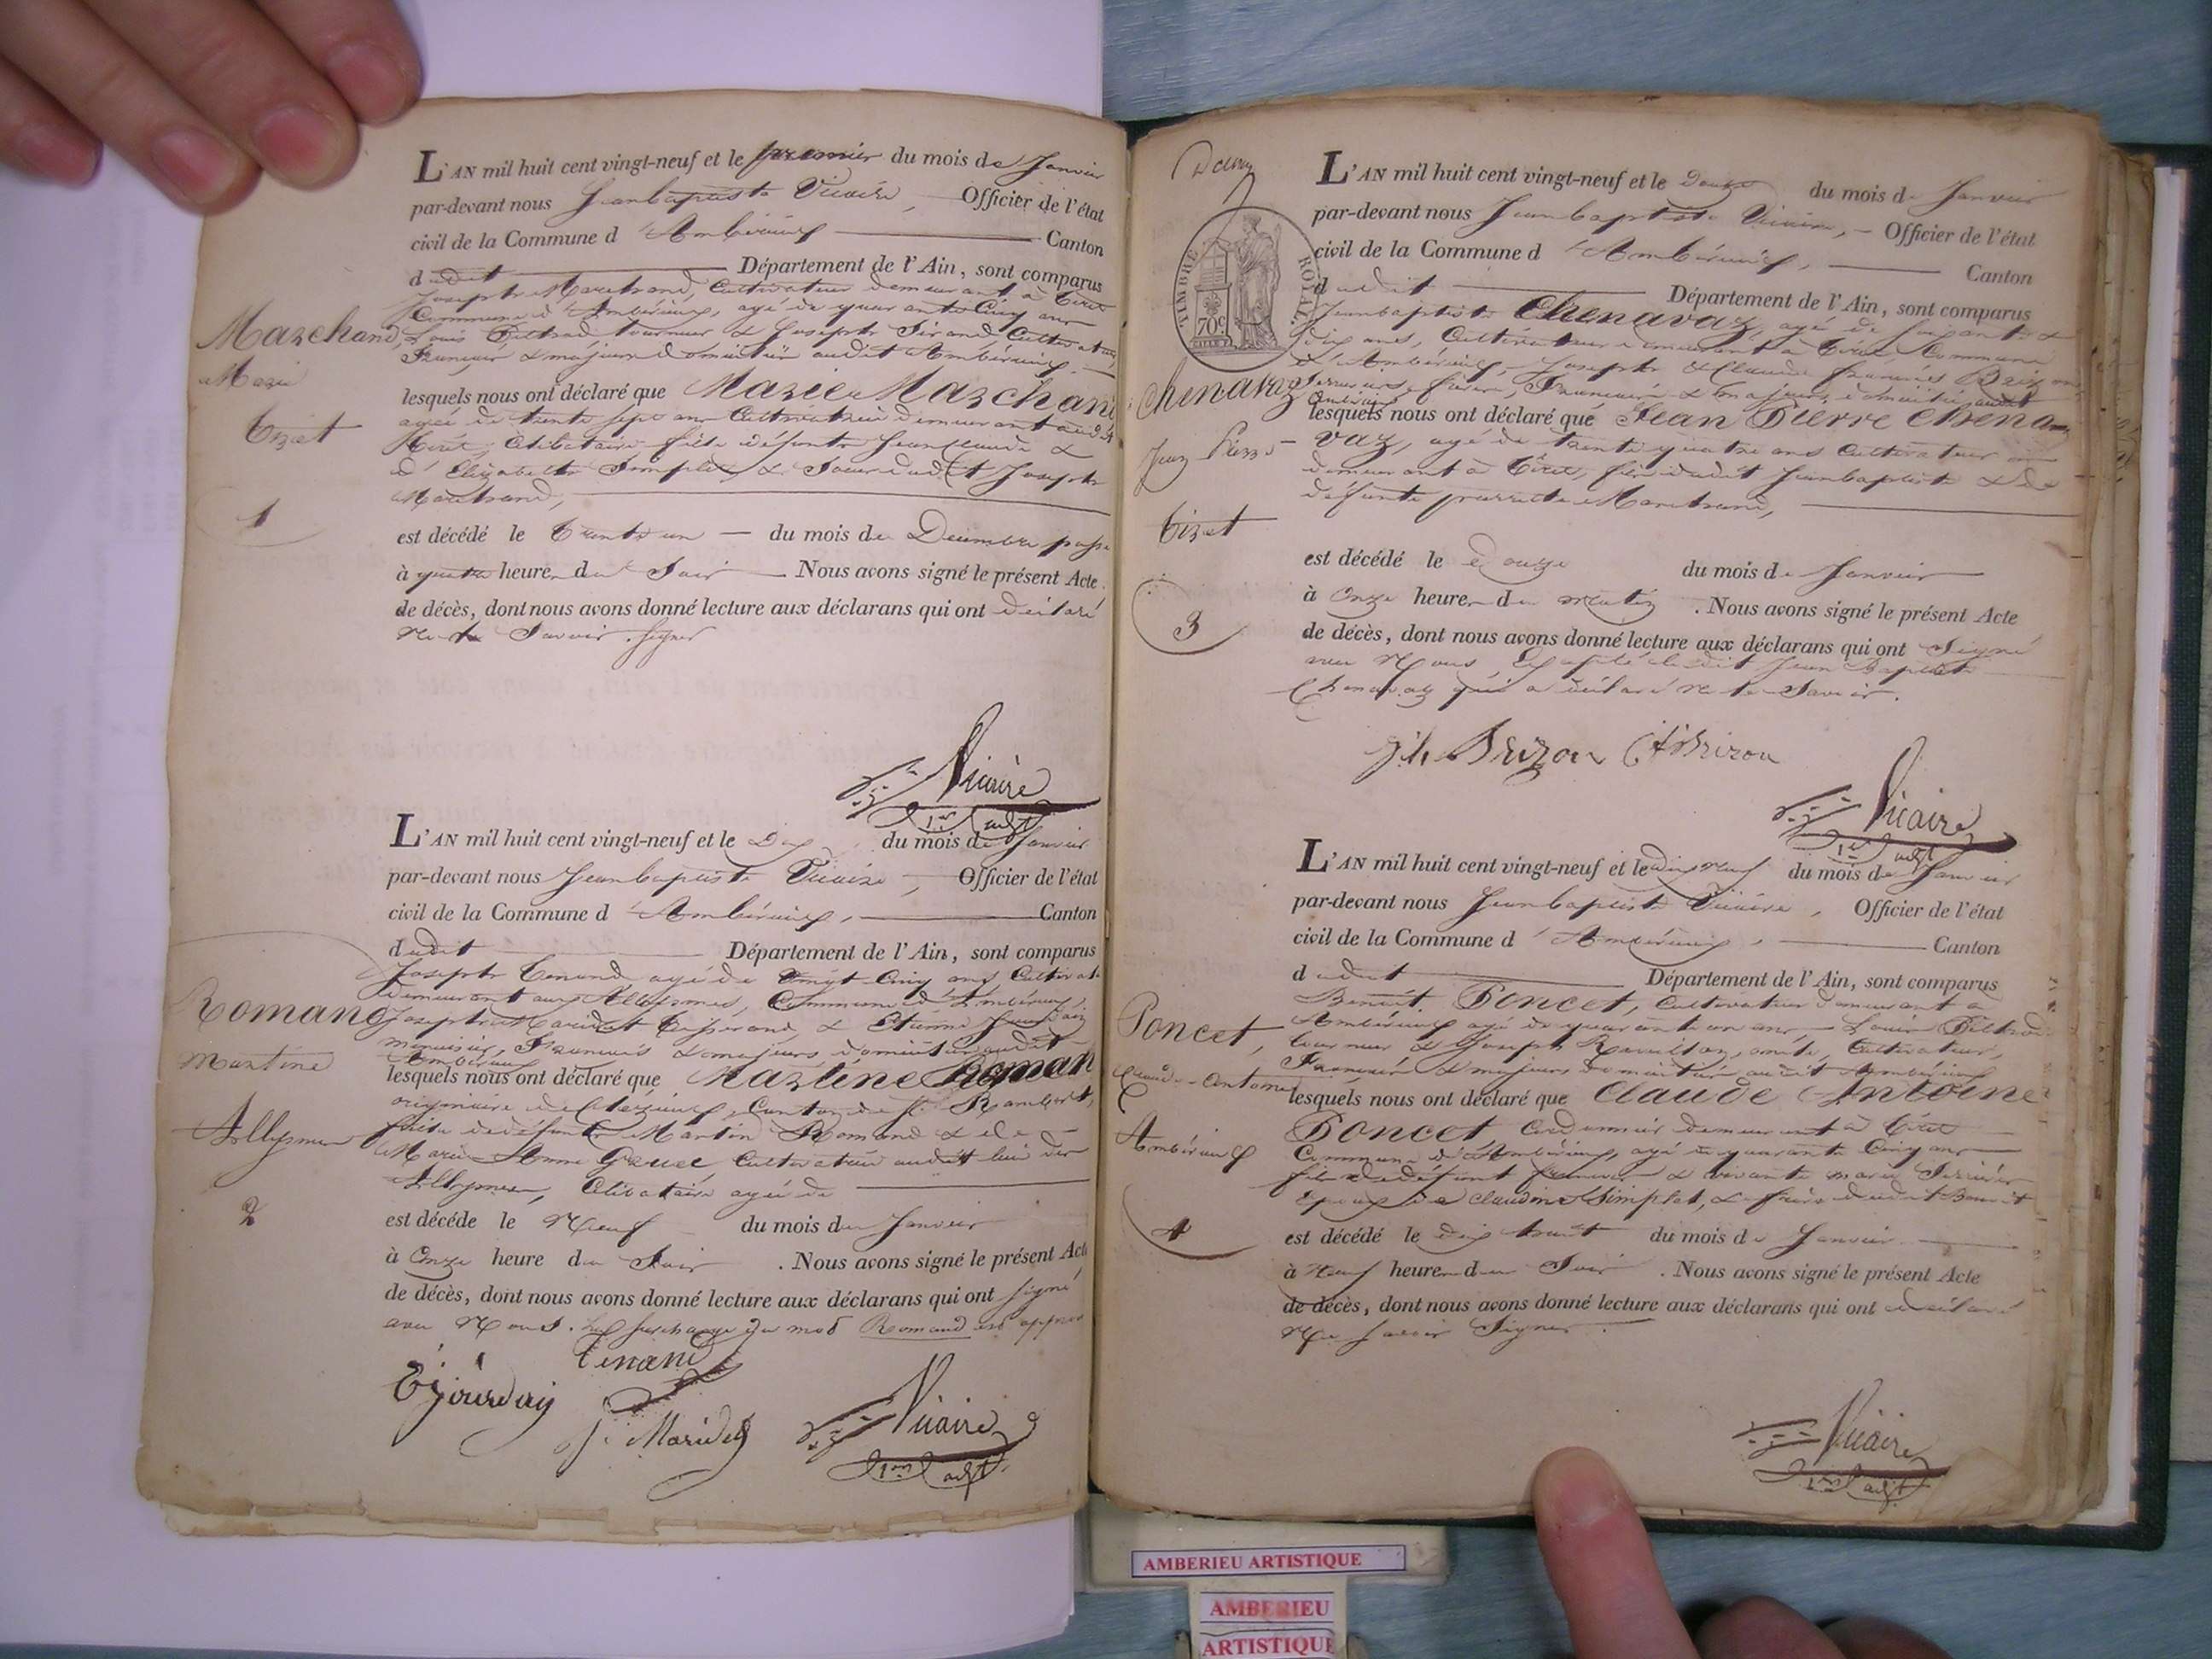 L'AN mil huit cent vingt-neuf et le premier du mois de Janvier
par-devant nous Jean baptiste Vicaire, Officier de l'état
civil de la Commune d'Ambérieux Canton
dudit Département de l'Ain, sont comparus
Joseph Marchand, Cultivateur demeurant à Tiret
Commune d'Ambérieux, agé de quarante Cinq ans
Marchand, Louis tourneur & Joseph Cultivateur
Français & majeurs domiciliés audit Ambérieux
Marie
lesquels nous ont déclaré que Marie Marchand
agée de trente sept ans Cultivatrice demeurant audit
Tiret
Tiret, Célibataire fille défunts Jean Claude &
d'Elizabeth Simplet & Soeur dudit Joseph
Marchand,
1
est décédé le Trente un du mois de Décembre passé
à quatre heure du Soir Nous avons signé le présent Acte
de décès, dont nous avons donné lecture aux déclarans qui ont déclaré
ne le Savoir signer
Vicaire
1er adjt
L'AN mil huit cent vingt-neuf et le Dix du mois de Janvier
par-devant nous Jean baptiste Vicaire, Officier de l'état
civil de la Commune d'Ambérieux, Canton
dudit Département de l'Ain, sont comparus
Joseph Tenand agé de Vingt Cinq ans Cultivat.
demeurant aux Allymes, Commune d'Ambérieux,
Romand
Joseph Maridet Tisserand, & Etienne Jourdain
menuisier, Français & majeurs domiciliés audit
Ambérieux
Martine
lesquels nous ont déclaré que Martine Roman
originaire de Cleyzieux, Canton de St. Rambert,
Allymes
fille de défunt Martin Romand & de
Marie Anne Cultivatrice audit lieu des
Allymes, Célibataire agée de
2
est décéde le Neuf du mois de Janvier
à Onze heure du Soir . Nous avons signé le présent Acte
de décès, dont nous avons donné lecture aux déclarans qui ont signé
avec Nous. surcharge du mot Romand est approuvé
Tenand
E Jourdain
J. Maridet
Vicaire
1er adjt
Douze
L'AN mil huit cent vingt-neuf et le Douze du mois de Janvier
par-devant nous Jean baptiste Vicaire, Officier de l'état
TIMBRE ROYAL
70c
civil de la Commune d'Ambérieux, Canton
dudit Département de l'Ain, sont comparus
Jean baptiste Chenavaz, agé de soixante &
dix ans, Cultivateur demeurant à Tiret Commune
d'Ambérieux, Joseph & Claude François Brizon
Chenavaz
Serruriers frères, Français & majeurs domiciliés audit
Ambérieux
lesquels nous ont déclaré que Jean Pierre Chena-
Jean Pierre
vaz, agé de trente quatre ans Cultivateur
demeurant à Tiret, fils dudit Jean baptiste & de
défunte Marchand,
Tiret
est décédé le douze du mois de Janvier
à Onze heure du matin . Nous avons signé le présent Acte
3
de décès, dont nous avons donné lecture aux déclarans qui ont Signé
avec Nous, excepté ledit Jean Baptiste
Chenavaz qui a déclaré ne le Savoir.
Jh Brizon Cf Brizon
Vicaire
1er adjt
L'AN mil huit cent vingt-neuf et le dix neuf du mois de Janvier
par-devant nous Jean baptiste Vicaire, Officier de l'état
civil de la Commune d'Ambérieux, Canton
dudit Département de l'Ain, sont comparus
Benoit Poncet, Cultivateur demeurant à
Poncet,
Ambérieux agé de quarante un ans, Louis
tourneur & Joseph Cultivateur,
Français & majeurs domiciliés audit Ambérieux
Claude-Antoine
lesquels nous ont déclaré que Claude Antoine
Poncet Cordonnier demeurant à Tiret
Ambérieux
Commune d'Ambérieux, agé de quarante Cinq ans
fils de défunt & vivante marie
époux de Claudine Simplet, & frère dudit Benoit
4
est décédé le dix huit du mois de Janvier
à Neuf heure du Soir . Nous avons signé le présent Acte
de décès, dont nous avons donné lecture aux déclarans qui ont déclaré
Ne savoir Signer
Vicaire
1er adjt
AMBERIEU ARTISTIQUE
AMBERIEU
ARTISTIQUE